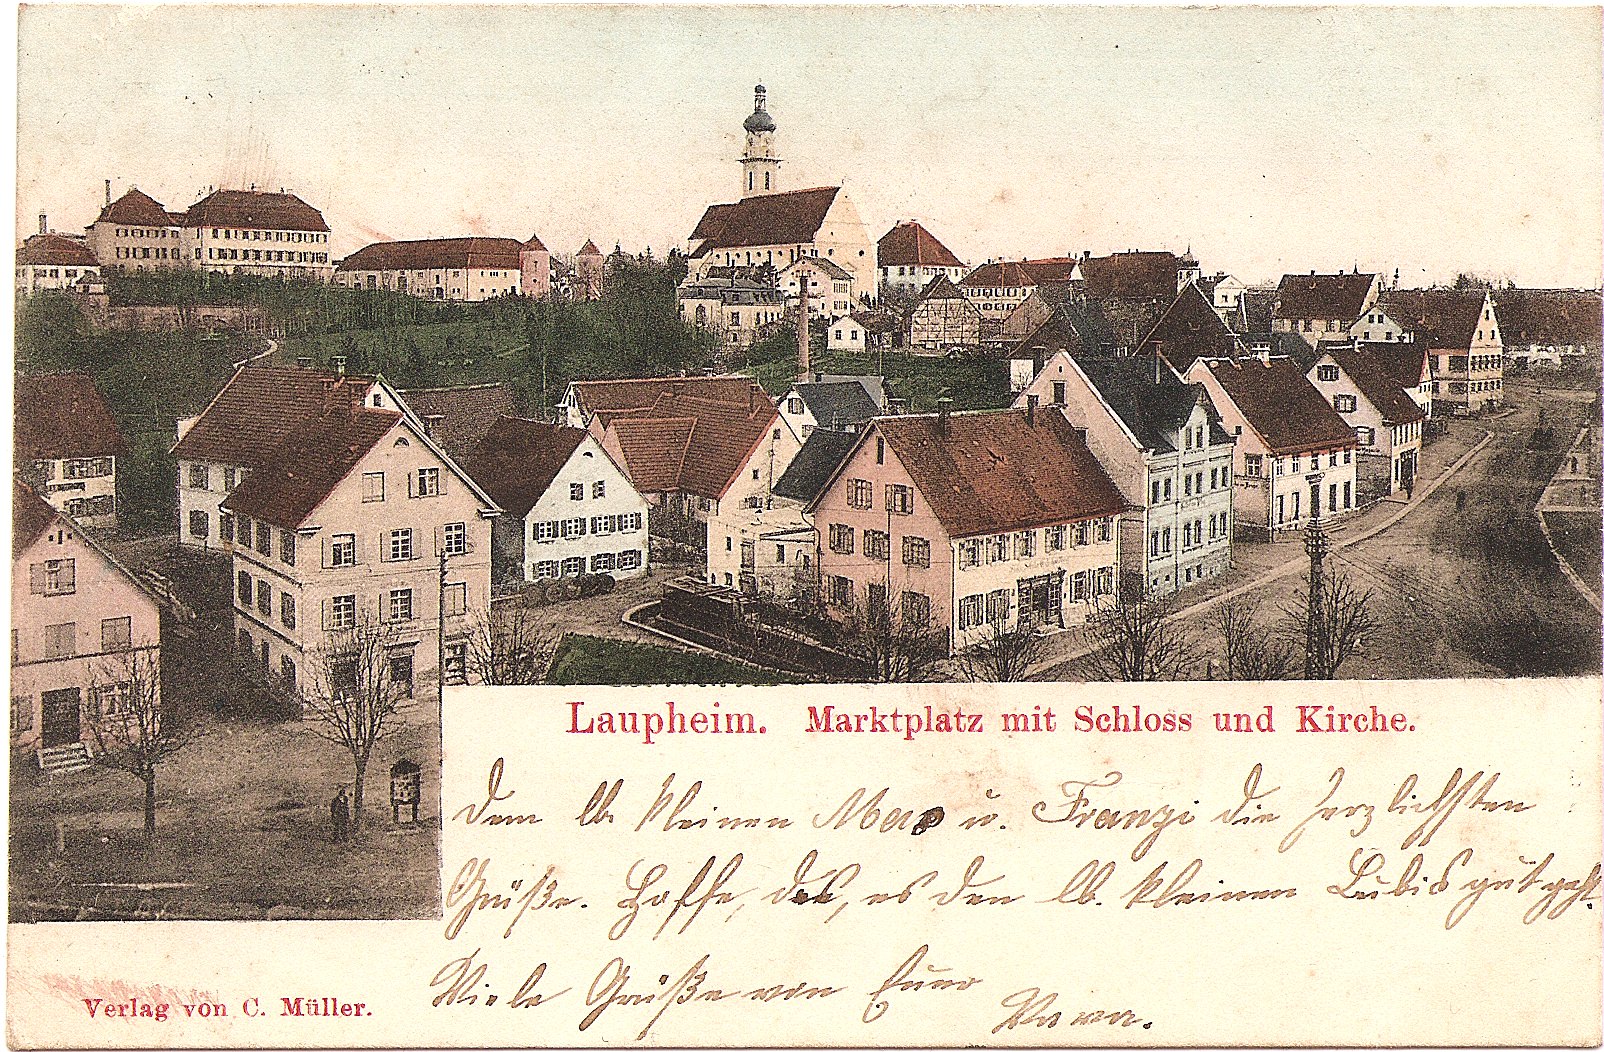 Laupheim. Marktplatz mit Schloss und Kirche.
Dem lb. kleinen Max u. Franzi die herzlichsten
Grüße. Hoffe, das, es den lb. kleinen Bubis gut geht.
Viele Grüße von
Verlag von C. Müller.